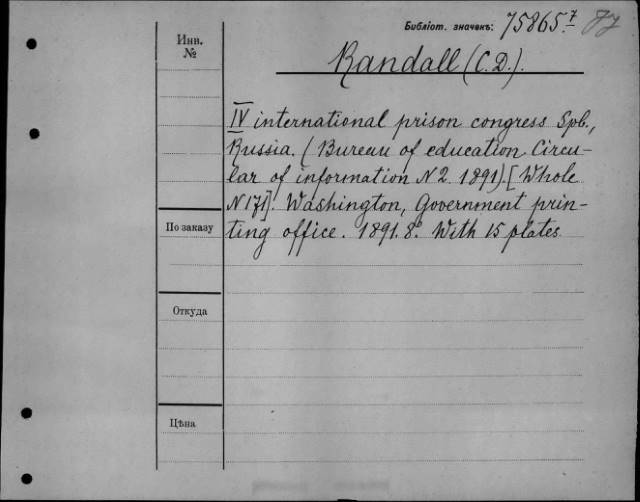 Библіот. значекъ: 75865.7
Инв.
№
Randall (C.D.).
IV international prison congress Spb.,
Russia. (Bureau of education Circu-
lar of information N 2. 1891) [Whole
N 171]. Washington, Government prin-
ting office. 1891. 8°. With 15 plates
По заказу
Откуда
Цѣна